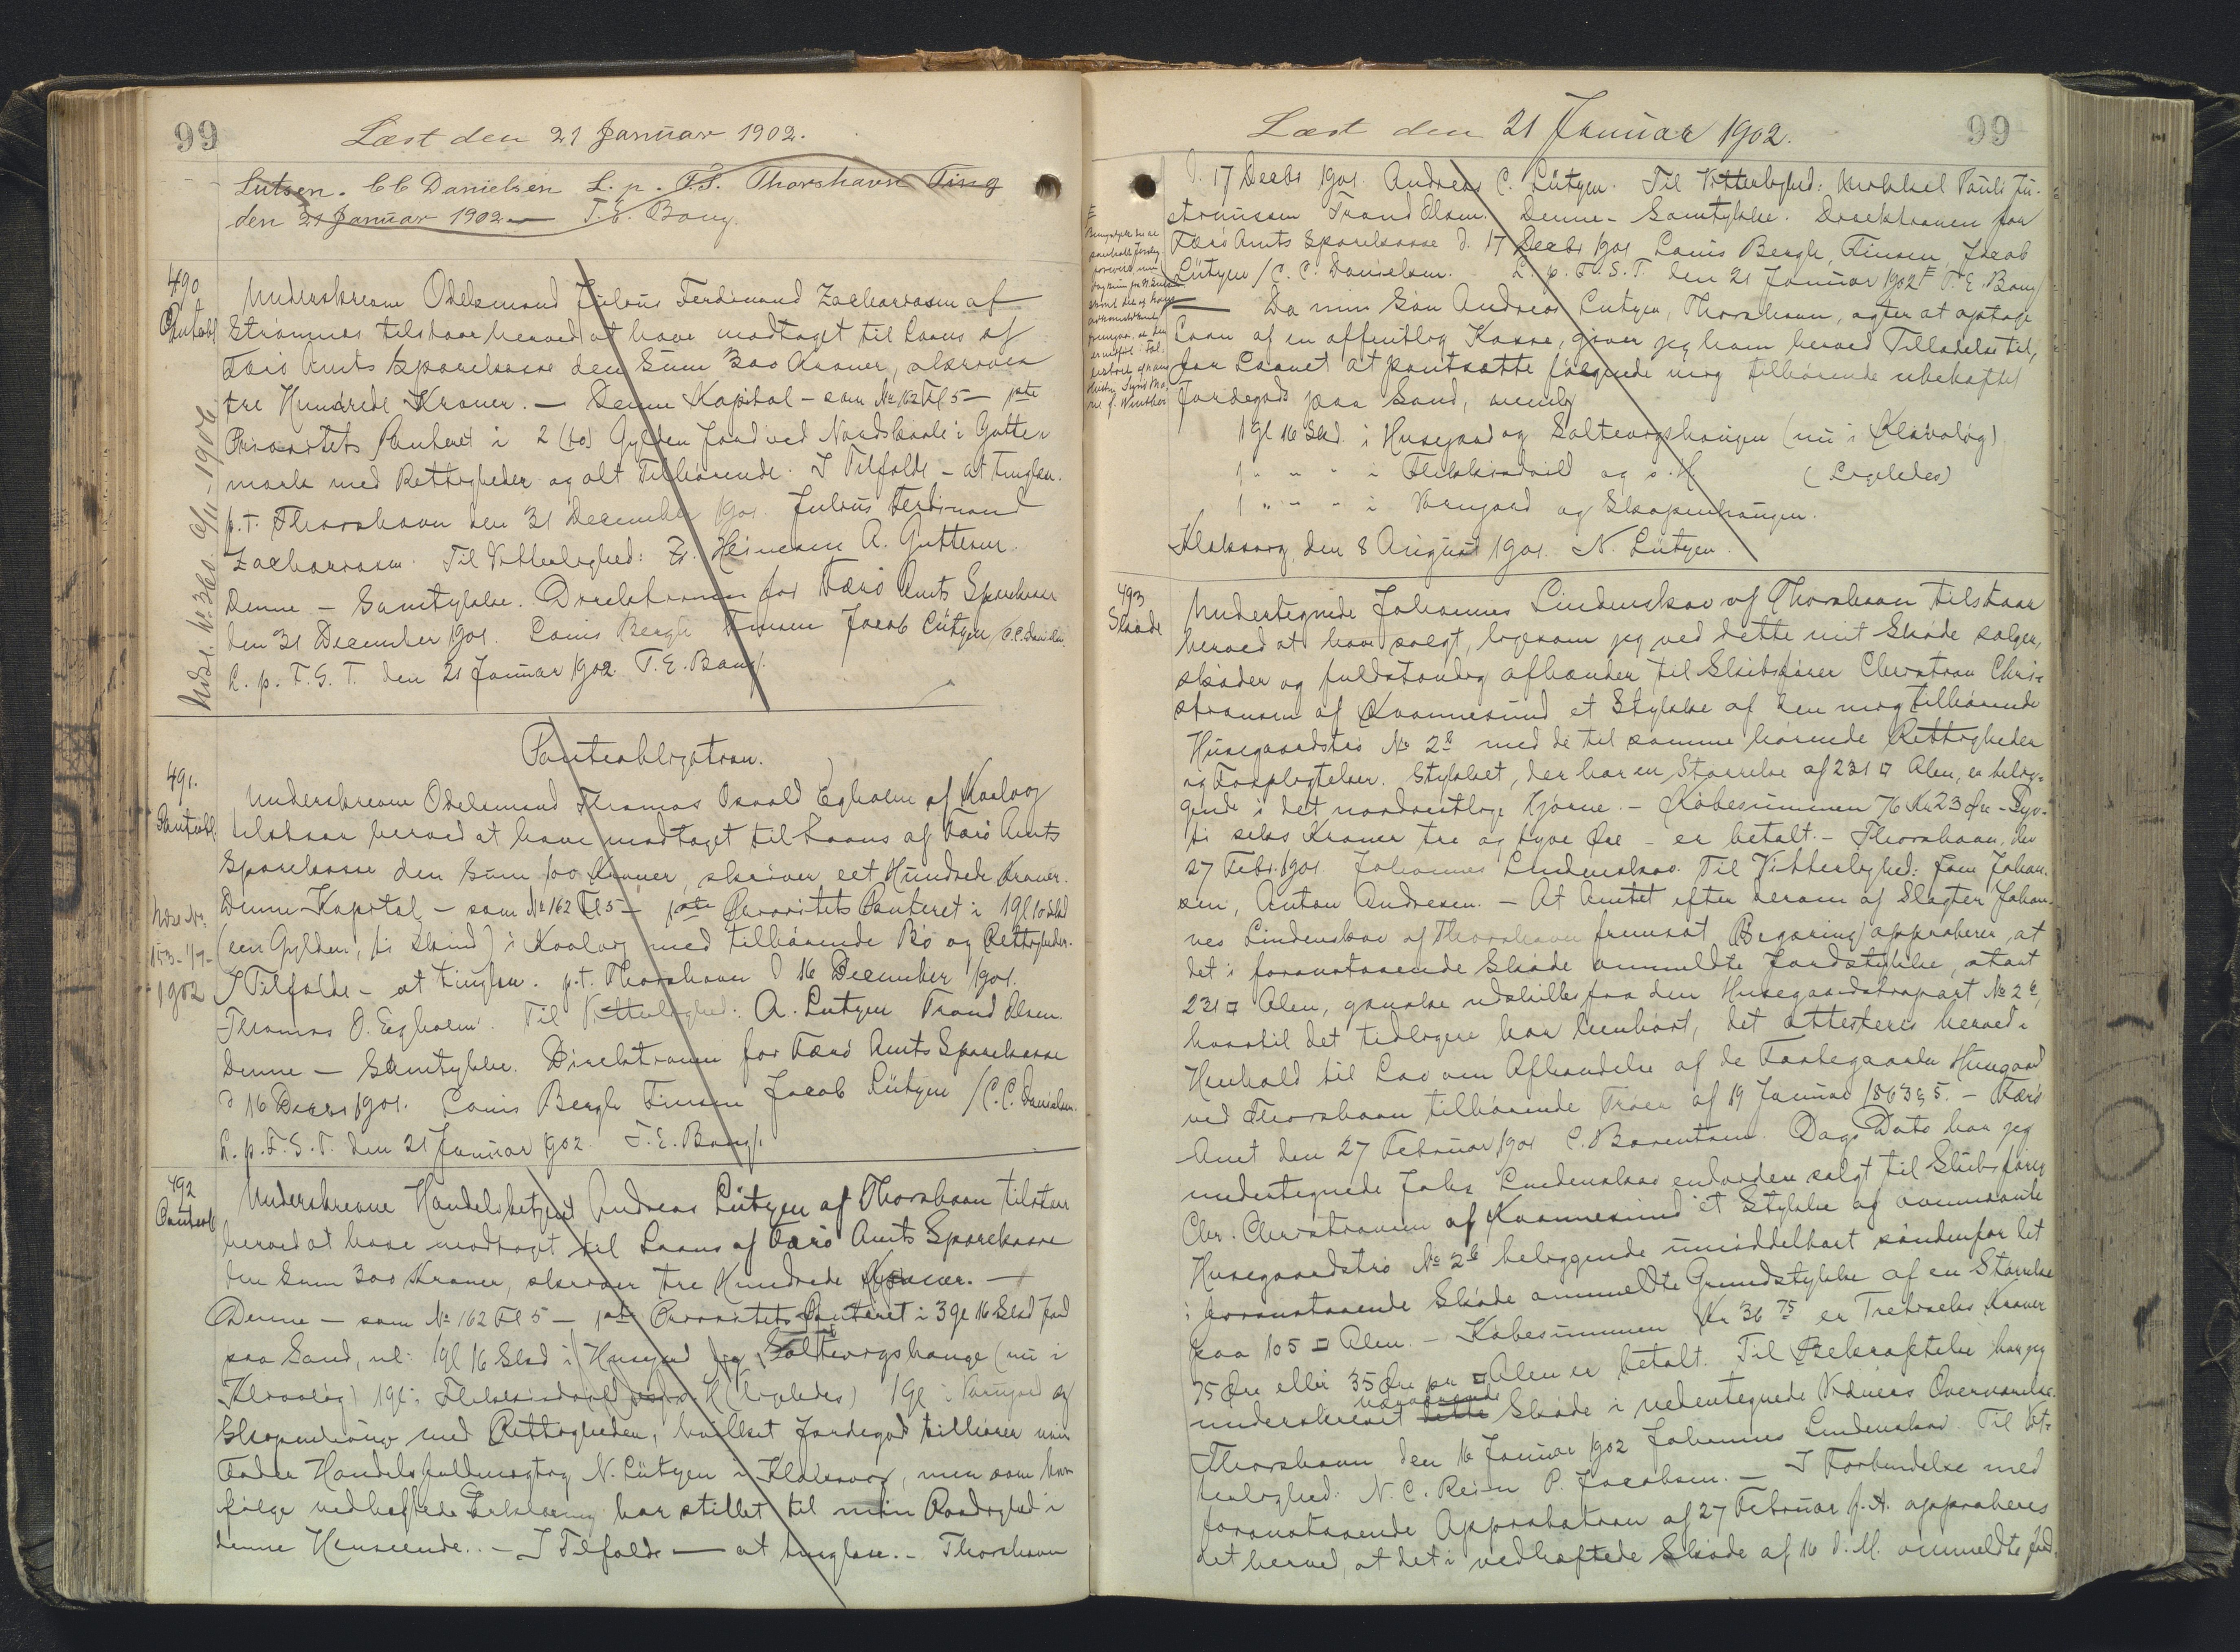 99
Læst den 21 Januar 1902.
Lützen. C C Danielsen L. p. F.S. Thorshavn Ting
den 21 Januar 1902 — T.E. Bang.
490
Pantobl
Underskrevne Odelsmand Julius Ferdinand Zachariasen af
Strømnæs tilstaar herved at have modtaget til Laans af
Færø Amts Sparekasse den Sum 300 Kroner, skriver
tre Hundrede Kroner. — Denne Kapital – som № 162 Fl 5 – 1ste
Prioritets Panteret i 2 (to) Gylden Jord ved Nordskaale i Gutte-
mark med Rettigheder og alt Tilhørende. I Tilfælde – at tinglæs.
p.t. Thorshavn den 31 December 1901. Julius Ferdinand
Zachariasen. Til Vitterlighed: Heinesen A. Guttesen.
Denne – Samtykke. Direktionen for Færø Amts Sparekasse
den 31 December 1901. Louis Bergh Finsen Jacob Lützen / C.C. Danielsen.
L. p. F. S. T. den 21 Januar 1902. T. E. Bang/.
Udsl. № 360. 6/11 - 1906
Panteobligation.
491.
Pantobl.
Underskrevne Odelsmand Thomas Osvald Egholm af Kollog
tilstaar herved at have modtaget til Laans af Færø Amts
Sparekasse den Sum 100 Kroner, skriver eet Hundrede Kroner.
Denne Kapital – som № 162 Fl 5 – 1ste Prioritets Panteret i 1 Gl 10 Skd
(een Gylden, ti Skind) i Kollog med tilhørende Bø og Rettigheder.
I Tilfælde – at tinglæs. p.t. Thorshavn d 16 December 1901.
Thomas O. Egholm. Til Vitterlighed: A. Lützen Trond Olsen.
Denne – Samtykke. Direktionen for Færø Amts Sparekasse
d 16 Decbr 1901. Louis Bergh Finsen Jacob Lützen / C.C. Danielsen.
L. p. F. S. T. den 21 Januar 1902. T. E. Bang/.
Udsl. №
153 - 1/9 -
1902
492
Pantob
Underskrevne Handelsbetjent Andreas Lützen af Thorshavn tilstaar
herved at have modtaget til Laans af Færø Amts Sparekasse
den Sum 300 Kroner, skriver tre Hundrede Kroner. —
Denne – som № 162 Fl 5 – 1ste Prioritets Panteret i 3 Gl 16 Skd Jord
paa Sand, nl: 1 Gl 16 Skd i Husgard og Saltvorgshauge (nu i
Klovalög) 1 Gl i (ligeledes) 1 Gl i Vorngard og
Skopenhauge med Rettigheder, hvilket Jordegods tilhører min
Fader Handelsfuldmægtig N. Lützen i Klaksvog, men som han
følge vedhæftede Erklæring har stillet til min Raadighed i
denne Henseende. – I Tilfælde – at tinglæse. – Thorshavn
Læst den 21 Januar 1902.
99
d. 17 Decbr 1901. Andreas C. Lützen. Til Vitterlighed: Mikkel Pauli Ju-
stinussen Trond Olsen. Denne – Samtykke. Direktionen for
Færø Amts Sparekasse d. 17 Decbr 1901 Louis Bergh, Finsen, Jacob
Lützen / C. C. Danielsen. L. p. F. S. T. den 21 Januar 1902 T. E. Bang
— Da min Søn Andreas Lützen, Thorshavn, agter at optage
Laan af en offentlig Kasse, giver jeg ham herved Tilladelse til,
for Laanet at pantsætte følgende mig tilhørende ubehæftet
Jordegods paa Sand, nemlig
1 Gl 16 Skd i Husgard og Saltvorgshaugen (nu i Klovalög)
1 „ „ „ i og s. H (Ligeledes)
1 „ „ „ i Vorngard og Skopenhaugen.
Klaksvog, den 8 August 1901. N. Lützen.
493
Skøde
Undertegnede Johannes Lindenskov af Thorshavn tilstaar
herved at have solgt, ligesom jeg ved dette mit Skøde sælger,
skøder og fuldstændig afhænder til Skibsfører Christian Chri-
stiansen af Kvannesund et Stykke af den mig tilhørende
Husegaardstrø № 2 med de til samme hørende Rettigheder
og Forpligtelser. Stykket, der har en Størrelse af 231 □ Alen, er belig-
gende i det nordvestlige Hjørne. – Købesummen 76 Kr 23 Øre – Syv-
ti seks Kroner tre og tyve Øre – er betalt. – Thorshavn, den
27 Febr. 1901 Johannes Lindenskov. Til Vitterlighed: Johan-
sen, Anton Andresen. – At Amtet efter derom af Slagter Johan-
nes Lindenskov af Thorshavn fremsat Begæring approberer, at
det i foranstaaende Skøde ommeldte Jordstykke, stort
231 □ Alen, ganske udskilles fra den Husegaardstrøpart № 2,
hvortil det tidligere har henhørt, det attesteres herved i
Henhold til Lov om Afhændelse af de Fæstegaarden Husegaard
ved Thorshavn tilhørende Trøer af 19 Januar 1863 § 5. – Færø
Amt den 27 Februar 1901 C. Bærentsen. Dags Dato har jeg
undertegnede Johs Lindenskov endvidere solgt til Skibsfører
Chr. Christiansen af Kvannesund et Stykke af ovennævnte
Husegaardstrø № 2 beliggende umiddelbart søndenfor det
i foranstaaende Skøde ommeldte Grundstykke af en Størrelse
paa 105 □ Alen. – Købesummen Kr 36 75 er Tretiseks Kroner
75 Øre eller 35 Øre pr □ Alen er betalt. Til Bekræftelse har jeg
underskrevet dette nærværende Skøde i nedentegnede Vidners Overværelse.
Thorshavn den 16 Januar 1902 Johannes Lindenskov. Til Vit-
terlighed: N. C. Rein P. Jacobsen. – I Forbindelse med
foranstaaende Approbation af 27 Februar f. A. approberes
det herved, at det i vedhæftede Skøde af 16 d. M. ommeldte Jord-